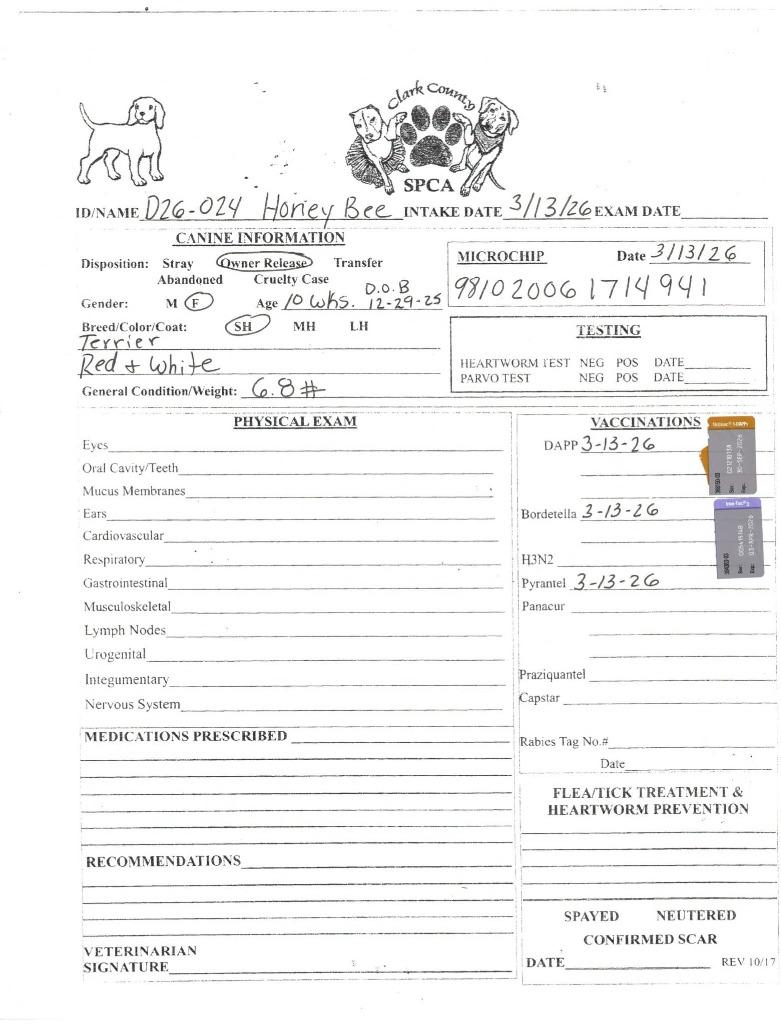 Clark County
SPCA
ID/NAME D26-024 Honey Bee INTAKE DATE 3/13/26 EXAM DATE
CANINE INFORMATION
Disposition: Stray Owner Release Transfer
Abandoned Cruelty Case
Gender: M F Age 10 wks. D.O.B 12-29-25
Breed/Color/Coat: SH MH LH
Terrier
Red + White
General Condition/Weight: 6.8#
MICROCHIP Date 3/13/26
981020061714941
TESTING
HEARTWORM TEST NEG POS DATE
PARVO TEST NEG POS DATE
PHYSICAL EXAM
Eyes
Oral Cavity/Teeth
Mucus Membranes
Ears
Cardiovascular
Respiratory
Gastrointestinal
Musculoskeletal
Lymph Nodes
Urogenital
Integumentary
Nervous System
MEDICATIONS PRESCRIBED
RECOMMENDATIONS
VETERINARIAN
SIGNATURE
VACCINATIONS
DAPP 3-13-26
Bordetella 3-13-26
H3N2
Pyrantel 3-13-26
Panacur
Praziquantel
Capstar
Rabies Tag No.#
Date
FLEA/TICK TREATMENT &
HEARTWORM PREVENTION
SPAYED NEUTERED
CONFIRMED SCAR
DATE REV 10/17